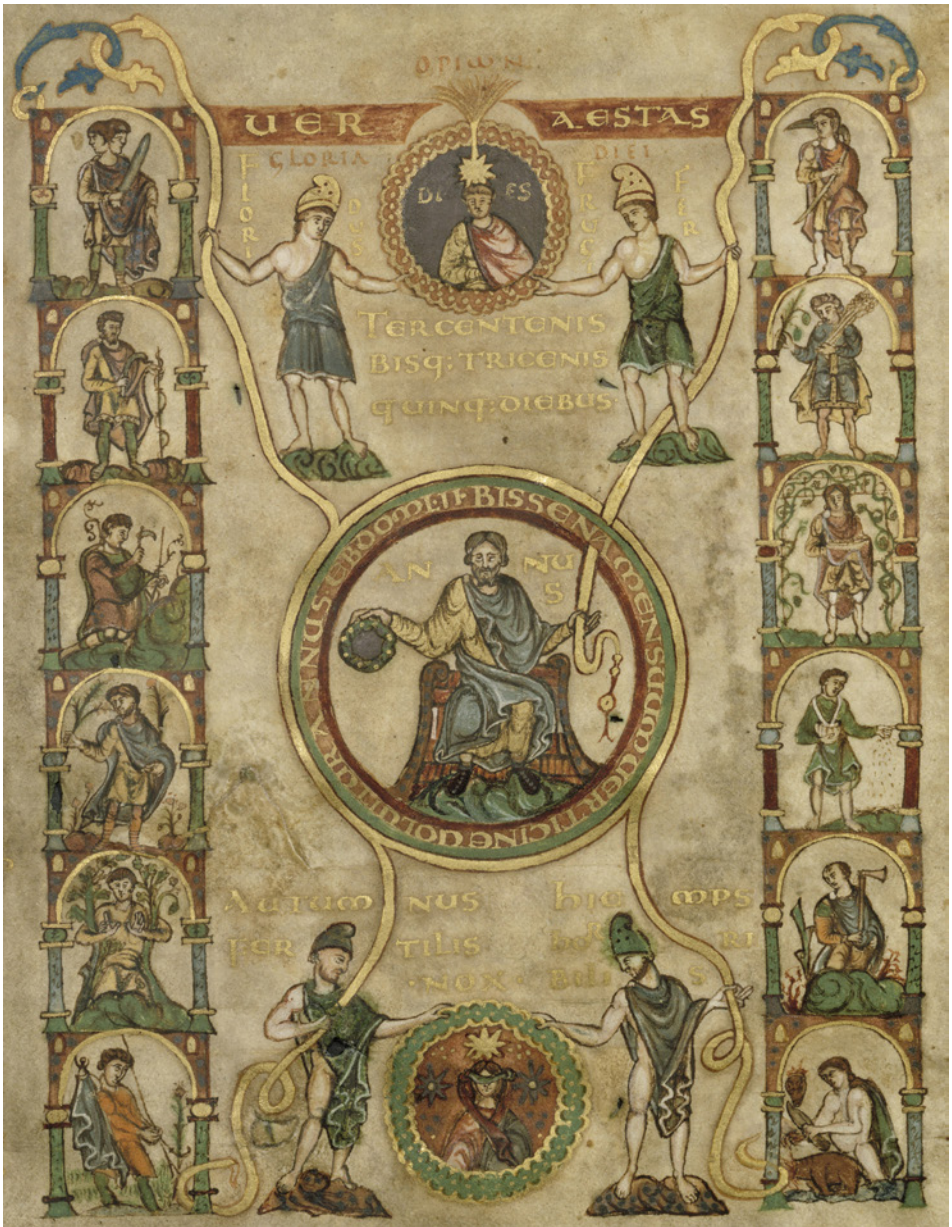 OPIWN:
UER AESTAS
GLORIA DIEI
FLORI DUS
FRUC FER
DI ES
TERCENTENIS
BISQ: TRICENIS
QUINQ: DIEBUS
AN NU
S
BISSENA MENSUUM UERTIGINE UOLUITUR ANNUS
AUTUM NUS hIE MPS
FER TILIS hOR RI
·NOX· BILI S